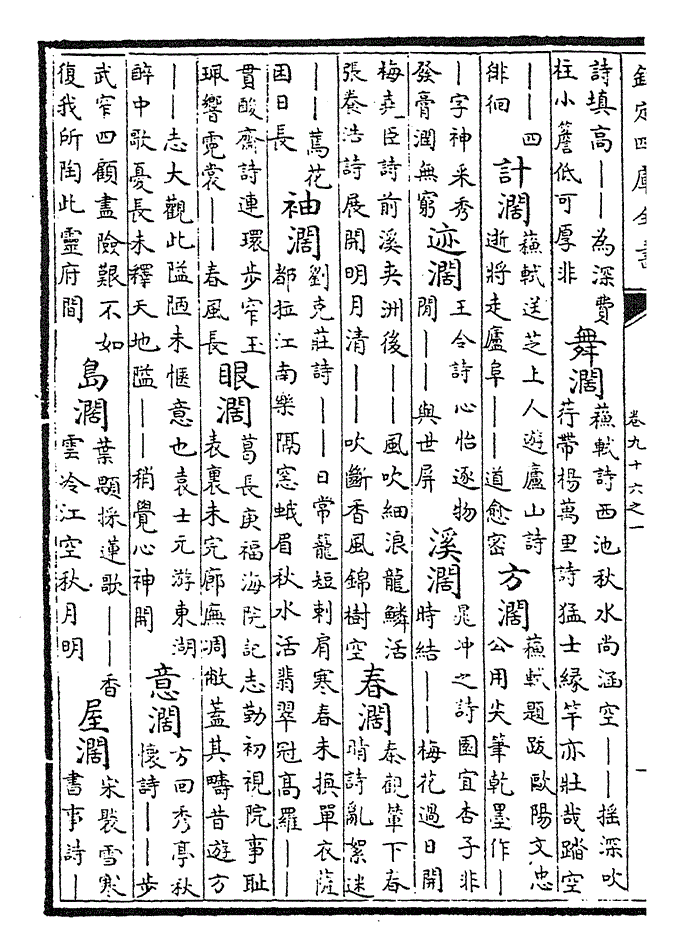 欽定四庫全書
卷九十六之一
一
詩填高——為深費
柱小簷低可厚非
舞濶
蘇軾詩西池秋水尚涵空——搖深吹
荇帶楊萬里詩猛士緣竿亦壯哉踏空
——四
徘徊
計濶
蘇軾送芝上人遊廬山詩
逝將走廬阜——道愈密
方濶
蘇軾題跋歐陽文忠
公用尖筆乾墨作—
—字神采秀
發膏潤無窮
迹濶
王令詩心怡逐物
閒——與世屏
溪濶
晁冲之詩園宜杏子非
時結——梅花過日開
梅堯臣詩前溪夾洲後——風吹細浪龍鱗活
張養浩詩展開明月清——吹斷香風錦樹空
春濶
秦觀輦下春
晴詩亂絮迷
——蔫花
困日長
袖濶
劉克莊詩——日常籠短剌肩寒春未換單衣薩
都拉江南樂隔窓蛾眉秋水活翡翠冠高羅——
貫酸齋詩連環步窄玉
珮響霓裳——春風長
眼濶
葛長庚福海院記志勤初視院事耻
表裏未完廊廡凋敝蓋其疇昔遊方
——志大觀此隘陋未愜意也袁士元游東湖
醉中歌憂長未釋天地隘——稍覺心神開
意濶
方回秀亭秋
懷詩——步
武窄四顧盡險艱不如
復我所陶此靈府間
島濶
葉顒採蓮歌——香
雲冷江空秋月明
屋濶
宋褧雪寒
書事詩—